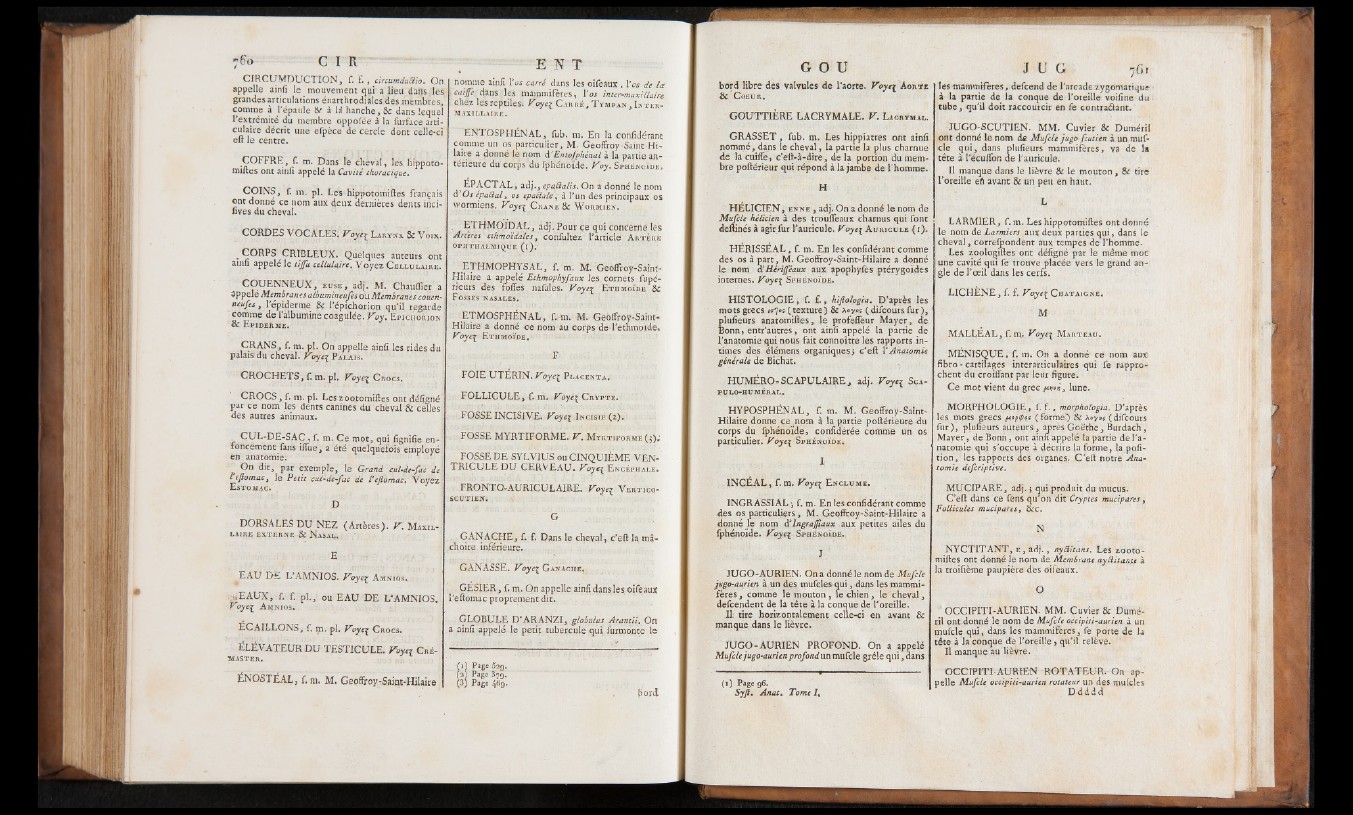 760 CIR
CIRCUMDUCTION, ſ. f., circumductio. On
appelle ainſi le mouvement qui a lieu dans les
grandes articulations énarthrodiales des membres,
comme à l'épaule & à la hanche, & dans lequel
l'extrémité du membre oppoſée à la ſurface arti-
culaire décrit une eſpèce de cercle dont celle-ci
eſt le centre.
COFFRE, ſ. m. Dans le cheval, les hippoto-
miſtes ont ainſi appelé la Cavité thoracique.
COINS, ſ. m. pl. Les hippotomiſtes français
ont donné ce nom aux deux dernières dents inci-
ſives du cheval.
CORDES VOCALES. Voyez LARYNX & VOIX.
CORPS CRIBLEUX. Quelques auteurs ont
ainſi appelé le tiſſu cellulaire. Voyez CELLULAIRE.
COUENNEUX, EUSE, adj. M. Chauſſier a
appelé Membranes albumineuſes ou Membranes couen-
neuſes, l'épiderme & l'épichorion qu'il regarde
comme de l'albumine coagulée. Voy. EPICHORION
& EPIDERME.
CRANS, ſ. m. pl. On appelle ainſi les rides du
palais du cheval. Voyez PALAIS.
CROCHETS, ſ. m. pl. Voyez CROCS.
CROCS, ſ. m. pl. Les zootomiſtes ont déſigné
par ce nom les dents canines du cheval & celles
des autres animaux.
CUL-DE-SAC, ſ. m. Ce mot, qui ſignifie en-
foncement ſans iſſue, a été quelquefois employé
en anatomie.
On dit, par exemple, le Grand cul-de-ſac de
l'eſtomac, le Petit cul-de-ſac de l'eſtomac. Voyez
ESTOMAC.
D
DORSALES DU NEZ (Artères). V. MAXIL-
LAIRE EXTERNE & NASAL.
E
EAU DE L'AMNIOS. Voyez AMNIOS.
EAUX, ſ. f. pl., ou EAU DE L'AMNIOS.
Voyez AMNIOS.
ÉCAILLONS, ſ. m. pl. Voyez CROCS.
ÉLÉVATEUR DU TESTICULE. Voyez CRÉ-
MASTER.
ÉNOSTÉAL, ſ. m. M. Geoffroy-Saint-Hilaire
ENT
nomme ainſi l'os carré dans les oiſeaux, l'os de la
caiſſe dans les mammifères, l'os inter-maxillaire
chez les reptiles. Voyez CARRÉ, TYMPAN, INTER-
MAXILLAIRE.
ENTOSPHÉNAL, ſub. m. En la conſidérant
comme un os particulier, M. Geoffroy-Saint-Hi-
laire a donné le nom d'Entoſphénal à la partie an-
térieure du corps du ſphénoïde. Voy. SPHÉNOÏDE.
ÉPACTAL, adj., epactalis. On a donné le nom
d'Os épactal, os epactale, à l'un des principaux os
wormiens. Voyez CRANE & WORMIEN.
ETHMOÏDAL, adj. Pour ce qui concerne les
Artères ethmoïdales, conſultez l'article ARTÈRE
OPHTHALMIQUE (1).
ETHMOPHYSAL, ſ. m. M. Geoffroy-Saint-
Hilaire a appelé Ethmophyſaux les cornets ſupé-
rieurs des foſſes naſales. Voyez ETHMOÏDE &
FOSSES NASALES.
ETMOSPHÉNAL, ſ. m. M. Geoffroy-Saint-
Hilaire a donné ce nom au corps de l'ethmoïde.
Voyez ETHMOÏDE.
F
FOIE UTÉRIN. Voyez PLACENTA.
FOLLICULE, ſ. m. Voyez CRYPTE.
FOSSE INCISIVE. Voyez INCISIF (2).
FOSSE MYRTIFORME. V. MYRTIFORME (3).
FOSSE DE SYLVIUS ou CINQUIÈME VEN-
TRICULE DU CERVEAU. Voyez ENCÉPHALE.
FRONTO-AURICULAIRE. Voyez VERTICO-
SCUTIEN.
G
GANACHE, ſ. f. Dans le cheval, c'eſt la mâ-
choire inférieure.
GANASSE. Voyez GANACHE.
GÉSIER, ſ. m. On appelle ainſi dans les oiſeaux
l'eſtomac proprement dit.
GLOBULE D'ARANZI, globulus Arantii. On
a ainſi appelé le petit tubercule qui ſurmonte le
(1) Page 629.
(2) Page 379.
(3) Page 469.
bord
GOU
bord libre des valvules de l'aorte. Voyez AORTE
& COEUR.
GOUTTIÈRE LACRYMALE. V. LACRYMAL.
GRASSET, ſub. m. Les hippiatres ont ainſi
nommé, dans le cheval, la partie la plus charnue
de la cuiſſe, c'eſt-à-dire, de la portion du mem-
bre poſtérieur qui répond à la jambe de l'homme.
H
HÉLICIEN, ENNE, adj. On a donné le nom de
Muſcle hélicien à des trouſſeaux charnus qui ſont
deſtinés à agir ſur l'auricule. Voyez AURICULE (1).
HÉRISSÉAL, ſ. m. En les conſidérant comme
des os à part, M. Geoffroy-Saint-Hilaire a donné
le nom d'Hériſſéaux aux apophyſes ptérygoïdes
internes. Voyez SPHÉNOÏDE.
HISTOLOGIE, ſ. f., hiſtologia. D'après les
mots grecs (texture) & λογος (diſcours ſur),
pluſieurs anatomiſtes, le profeſſeur Mayer, de
Bonn, entr'autres, ont ainſi appelé la partie de
l'anatomie qui nous fait connoître les rapports in-
times des élémens organiques; c'eſt l'Anatomie
générale de Bichat.
HUMÉRO-SCAPULAIRE, adj. Voyez SCA-
PULO-HUMÉRAL.
HYPOSPHÉNAL, ſ. m. M. Geoffroy-Saint-
Hilaire donne ce nom à la partie poſtérieure du
corps du ſphénoïde, conſidérée comme un os
particulier. Voyez SPHÉNOÏDE.
I
INCÉAL, ſ. m. Voyez ENCLUME.
INGRASSIAL, ſ. m. En les conſidérant comme
des os particuliers, M. Geoffroy-Saint-Hilaire a
donné le nom d'Ingraſſiaux aux petites ailes du
ſphénoïde. Voyez SPHÉNOÏDE.
J
JUGO-AURIEN. On a donné le nom de Muſcle
jugo-aurien à un des muſcles qui, dans les mammi-
fères, comme le mouton, le chien, le cheval,
deſcendent de la tête à la conque de l'oreille.
Il tire horizontalement celle-ci en avant &
manque dans le lièvre.
JUGO-AURIEN PROFOND. On a appelé
Muſcle jugo-aurien profond un muſcle grêle qui, dans
(1) Page 96.
Syſt. Anat. Tome I.
JUG 761
les mammifères, deſcend de l'arcade zygomatique
à la partie de la conque de l'oreille voiſine du
tube, qu'il doit raccourcir en ſe contractant.
JUGO-SCUTIEN. MM. Cuvier & Duméril
ont donné le nom de Muſcle jugo-ſcutien à un muſ-
cle qui, dans pluſieurs mammifères, va de la
tête à l'écuſſon de l'auricule.
Il manque dans le lièvre & le mouton, & tire
l'oreille en avant & un peu en haut.
L
LARMIER, ſ. m. Les hippotomiſtes ont donné
le nom de Larmiers aux deux parties qui, dans le
cheval, correſpondent aux tempes de l'homme.
Les zoologiſtes ont déſigné par le même mot
une cavité qui ſe trouve placée vers le grand an-
gle de l'œil dans les cerfs.
LICHÈNE, ſ. f. Voyez CHATAIGNE.
M
MALLÉAL, ſ. m. Voyez MARTEAU.
MÉNISQUE, ſ. m. On a donné ce nom aux
fibro-cartilages interarticulaires qui ſe rappro-
chent du croiſſant par leur figure.
Ce mot vient du grec μηνη, lune.
MORPHOLOGIE, ſ. f., morphologia. D'après
les mots grecs μορφος (forme) & λογος (diſcours
ſur), pluſieurs auteurs, après Goëthe, Burdach,
Mayer, de Bonn, ont ainſi appelé la partie de l'a-
natomie qui s'occupe à décrire la forme, la poſi-
tion, les rapports des organes. C'eſt notre Ana-
tomie deſcriptive.
MUCIPARE, adj.; qui produit du mucus.
C'eſt dans ce ſens qu'on dit Cryptes mucipares,
Follicules mucipares, &c.
N
NYCTITANT, E, adj., nyctitans. Les zooto-
miſtes ont donné le nom de Membrane nyctitante à
la troiſième paupière des oiſeaux.
O
OCCIPITI-AURIEN. MM. Cuvier & Dumé-
ril ont donné le nom de Muſcle occipiti-aurien à un
muſcle qui, dans les mammifères, ſe porte de la
tête à la conque de l'oreille, qu'il relève.
Il manque au lièvre.
OCCIPITI-AURIEN ROTATEUR. On ap-
pelle Muſcle occipiti-aurien rotateur un des muſcles
Ddddd